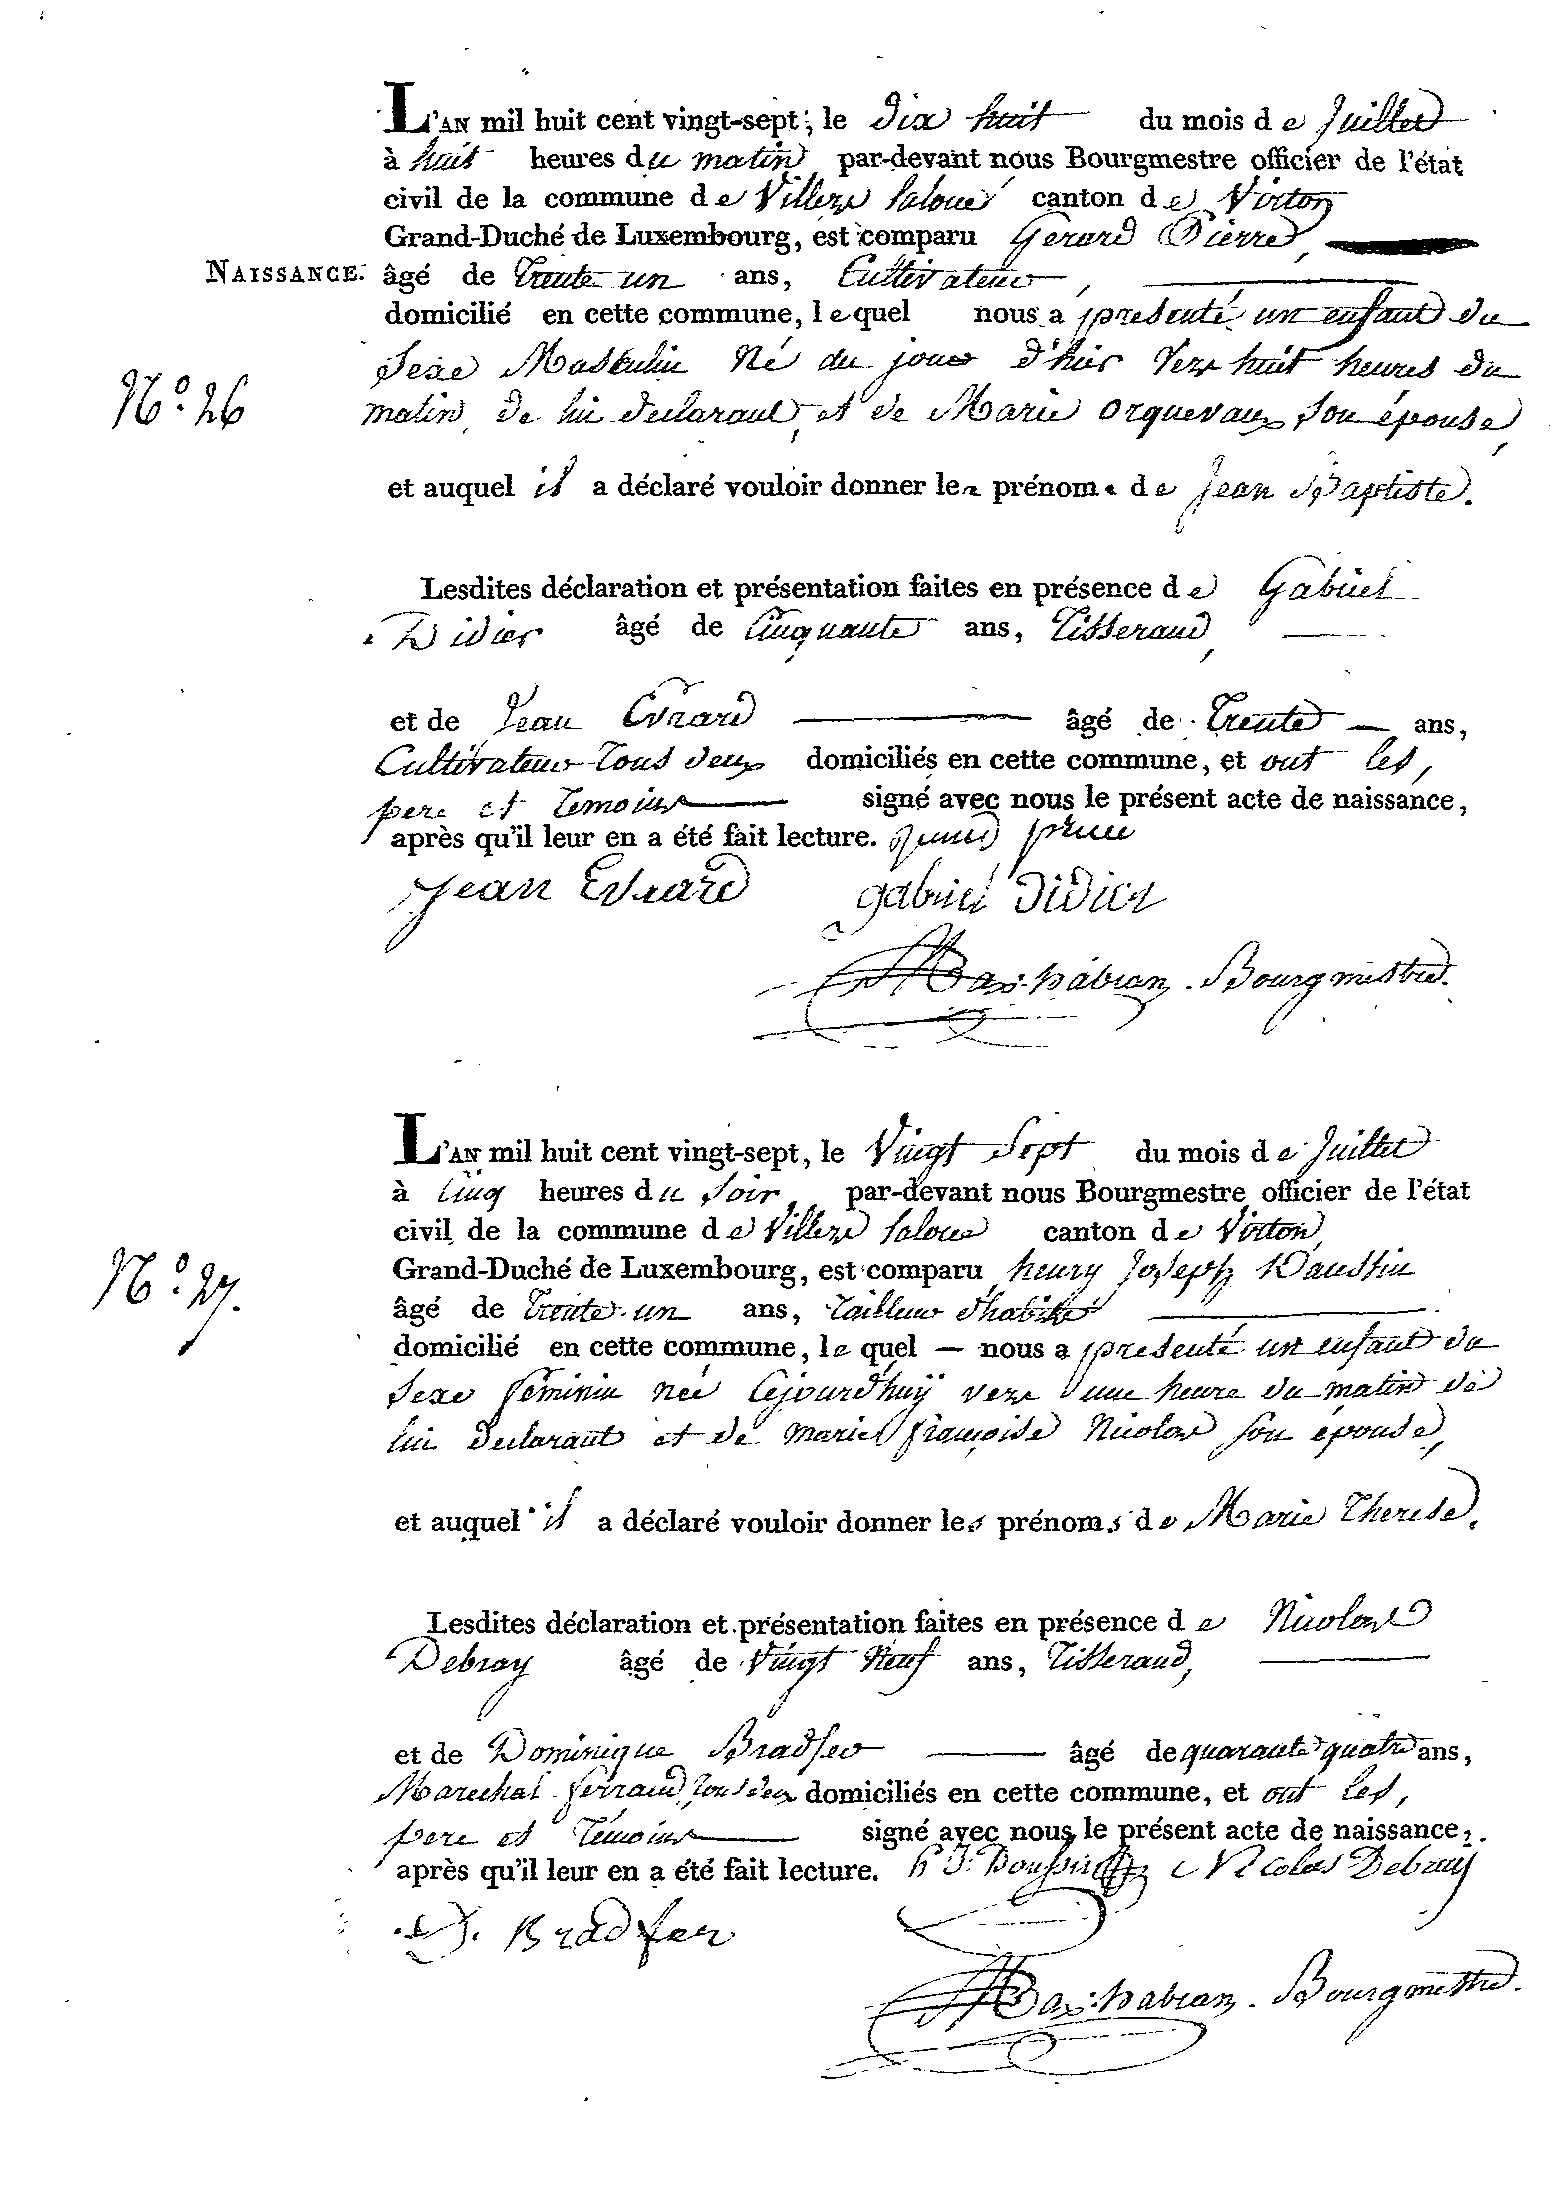 L'AN mil huit cent vingt-sept, le dix huit du mois de Juillet
à huit heures du matin par-devant nous Bourgmestre officier de l'état
civil de la commune de Villers laloue canton de Virton
Grand-Duché de Luxembourg, est comparu Gerard Pierre,
NAISSANCE. âgé de trente un ans, Cultivateur,
domicilié en cette commune, lequel nous a presenté un enfant du
Sexe Masculin Né du jour d'hier vers huit heures du
N.° 26 matin, de lui declarant, et de Marie Orquevaux son épouse,
et auquel il a déclaré vouloir donner les prénoms de Jean Baptiste.
Lesdites déclaration et présentation faites en présence de Gabriel
Didier âgé de Cinquante ans, Tisserand,
et de Jean Evrard âgé de Trente ans,
Cultivateur Tous deux domiciliés en cette commune, et ont les,
pere et Temoins signé avec nous le présent acte de naissance,
après qu'il leur en a été fait lecture. Gerard pierre
Jean Evrard gabriel Didier
Bourgmestre.
L'AN mil huit cent vingt-sept, le Vingt Sept du mois de Juillet
à Cinq heures du Soir, par-devant nous Bourgmestre officier de l'état
civil de la commune de Villers laloue canton de Virton,
N.° 27. Grand-Duché de Luxembourg, est comparu henry Joseph Daussin
âgé de Trente un ans, Tailleur d'habits
domicilié en cette commune, lequel nous a presenté un enfant du
Sexe feminin née Cejourd'huÿ vers une heure du matin de
lui declarant et de marie françoise Nicolas son épouse,
et auquel il a déclaré vouloir donner les prénoms de Marie Therese.
Lesdites déclaration et présentation faites en présence de Nicolas
Debray âgé de Vingt Neuf ans, Tisserand,
et de Dominique Bradfer âgé de quarante quatre ans,
Marechal ferrand, Tous deux domiciliés en cette commune, et ont les,
pere et Temoins signé avec nous le présent acte de naissance,
après qu'il leur en a été fait lecture. h J. Doussin Nicolas Debray
D. Bradfer
Bourgmestre.